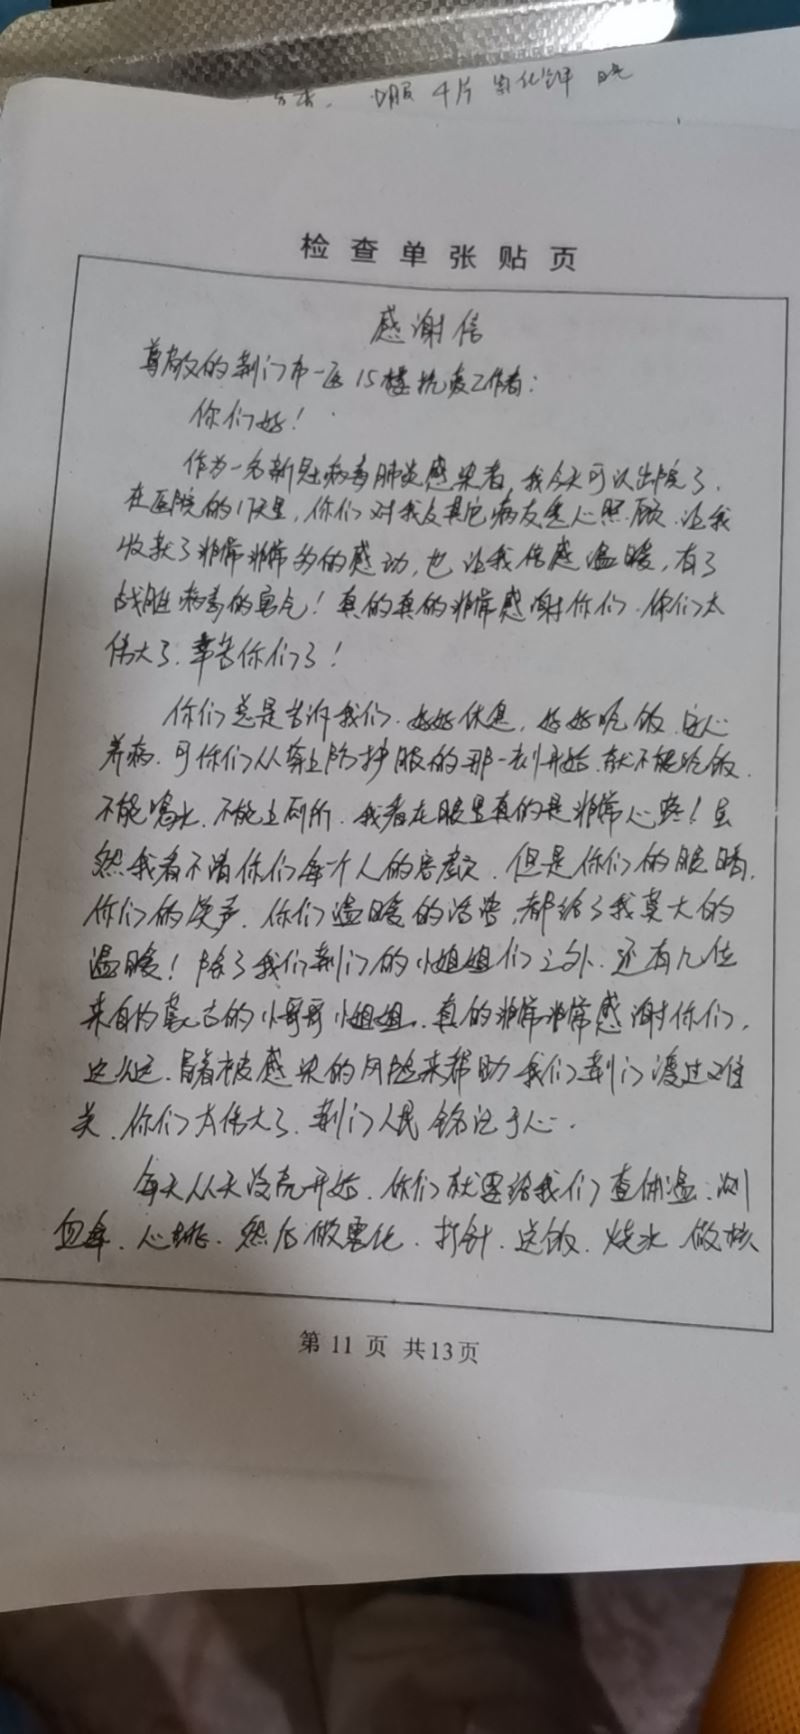 口服 4片 氯化钾
检查单张贴页
感谢信
尊敬的荆门市一医15楼抗疫工作者：
你们好！
作为一名新冠病毒肺炎感染者，我今天可以出院了。
在医院的17天里，你们对我及其它病友悉心照顾，让我
收获了非常非常多的感动，也让我倍感温暖，有了
战胜病毒的勇气！真的真的非常感谢你们，你们太
伟大了，辛苦你们了！
你们总是告诉我们，好好休息，好好吃饭，安心
养病，可你们从穿上防护服的那一刻开始，就不能吃饭，
不能喝水，不能上厕所，我看在眼里真的是非常心疼！虽
然我看不清你们每个人的容颜，但是你们的眼睛，
你们的笑声，你们温暖的话语，都给了我莫大的
温暖！除了我们荆门的小姐姐们之外，还有几位
来自内蒙古的小哥哥小姐姐，真的非常非常感谢你们，
这么远，冒着被感染的风险来帮助我们荆门渡过难
关，你们太伟大了，荆门人民铭记于心。
每天从天没亮开始，你们就要给我们查体温，测
血氧，心跳，然后做雾化，打针，送饭，烧水，做核
第 11 页 共13页